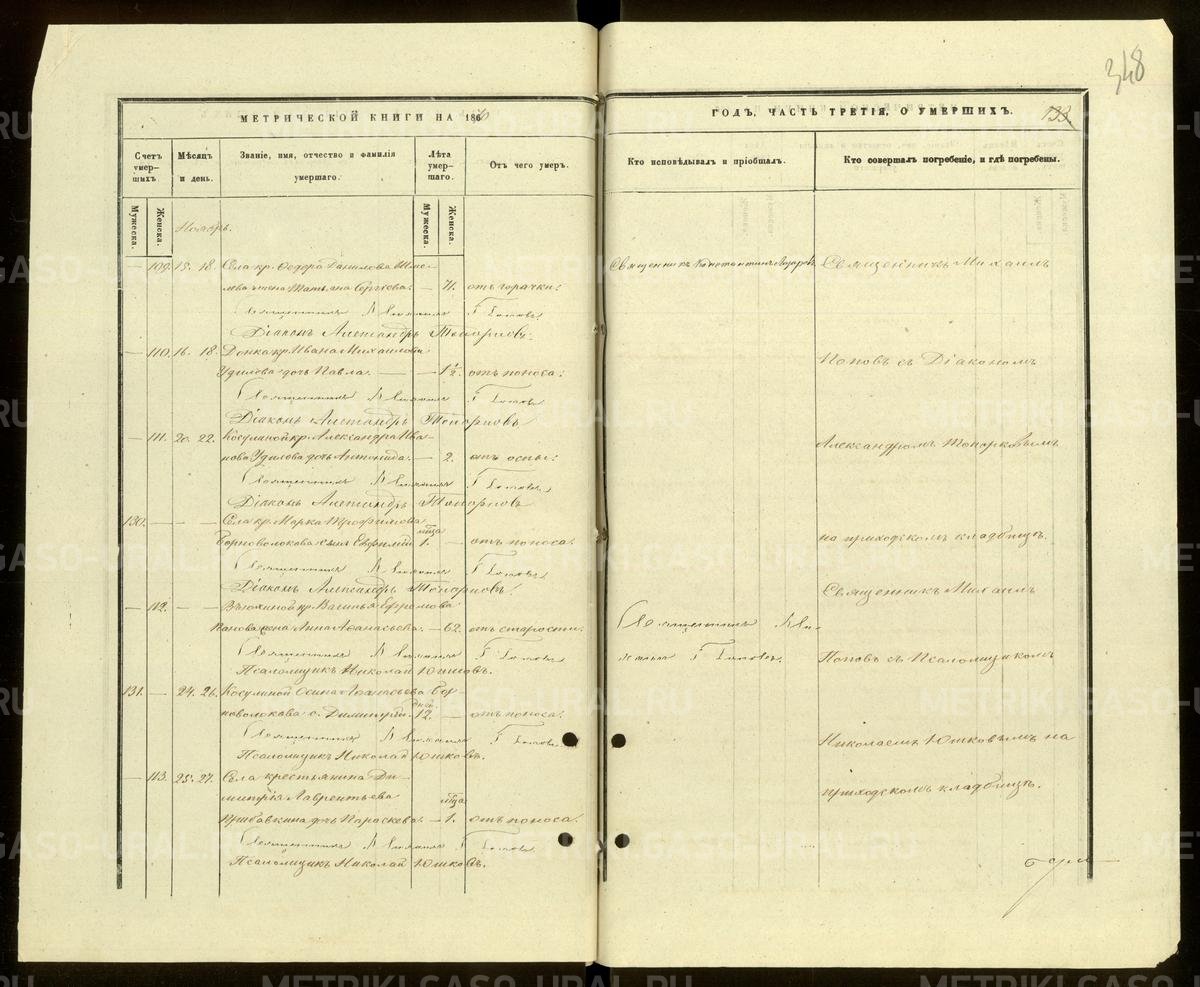 348
МЕТРИЧЕСКОЙ КНИГИ НА 186
ГОДЪ, ЧАСТЬ ТРЕТІЯ, О УМЕРШИХЪ.
133.
Счетъ умер-шихъ.
Мѣсяцъ и день.
Званіе, имя, отчество и фамилія умершаго.
Лѣта умер-шаго.
Отъ чего умеръ.
Кто исповѣдывалъ и пріобщалъ.
Кто совершалъ погребеніе, и гдѣ погребены.
Мужеска.
Женска.
Мужеска.
Женска.
Ноябрь.
— 109. 15. 18. Села кр. Ѳедора Данилова
жена Татьяна Сергѣева. — 71. отъ горячки.
Священникъ Михаилъ Поповъ
Діаконъ Александръ Топорковъ.
— 110. 16. 18. кр. Ивана Михайлова
Удилова дочь Павла. — — 1½. отъ поноса.
Священникъ Михаилъ Поповъ
Діаконъ Александръ Топорковъ
— 111. 20. 22. Косулиной кр. Александра Ива-
нова Удилова дочь Антонида. — 2. отъ оспы.
Священникъ Михаилъ Поповъ
Діаконъ Александръ Топорковъ
130. — — — Села кр. Марка Трофимова
Горноволокова сынъ Евфимій мѣсца 1. — отъ поноса.
Священникъ Михаилъ Поповъ
Діаконъ Александръ Топорковъ.
— 112. — — кр. Василья Ефремова
Панова жена Анна Аѳанасьева. — 62. отъ старости.
Священникъ Михаилъ Поповъ
Псаломщикъ Николай Юшковъ.
131. — 24. 26. Косулиной Осипа Аѳанасьева Гор-
новолокова с. Димитрій. дней 12. — отъ поноса.
Священникъ Михаилъ Поповъ
Псаломщикъ Николай Юшковъ.
— 113. 25. 27. Села крестьянина Ди-
митрія Лаврентьева
дочь Параскева. — мѣсца 1. отъ поноса.
Священникъ Михаилъ Поповъ
Псаломщикъ Николай Юшковъ.
Священникъ Константинъ
Священникъ Ми-
хаилъ Поповъ.
Священникъ Михаилъ
Поповъ съ Діакономъ
Александромъ Топорковымъ
на приходскомъ кладбищѣ.
Священникъ Михаилъ
Поповъ съ Псаломщикомъ
Николаемъ Юшковымъ на
приходскомъ кладбищѣ.
METRIKI.GASO-URAL.RU